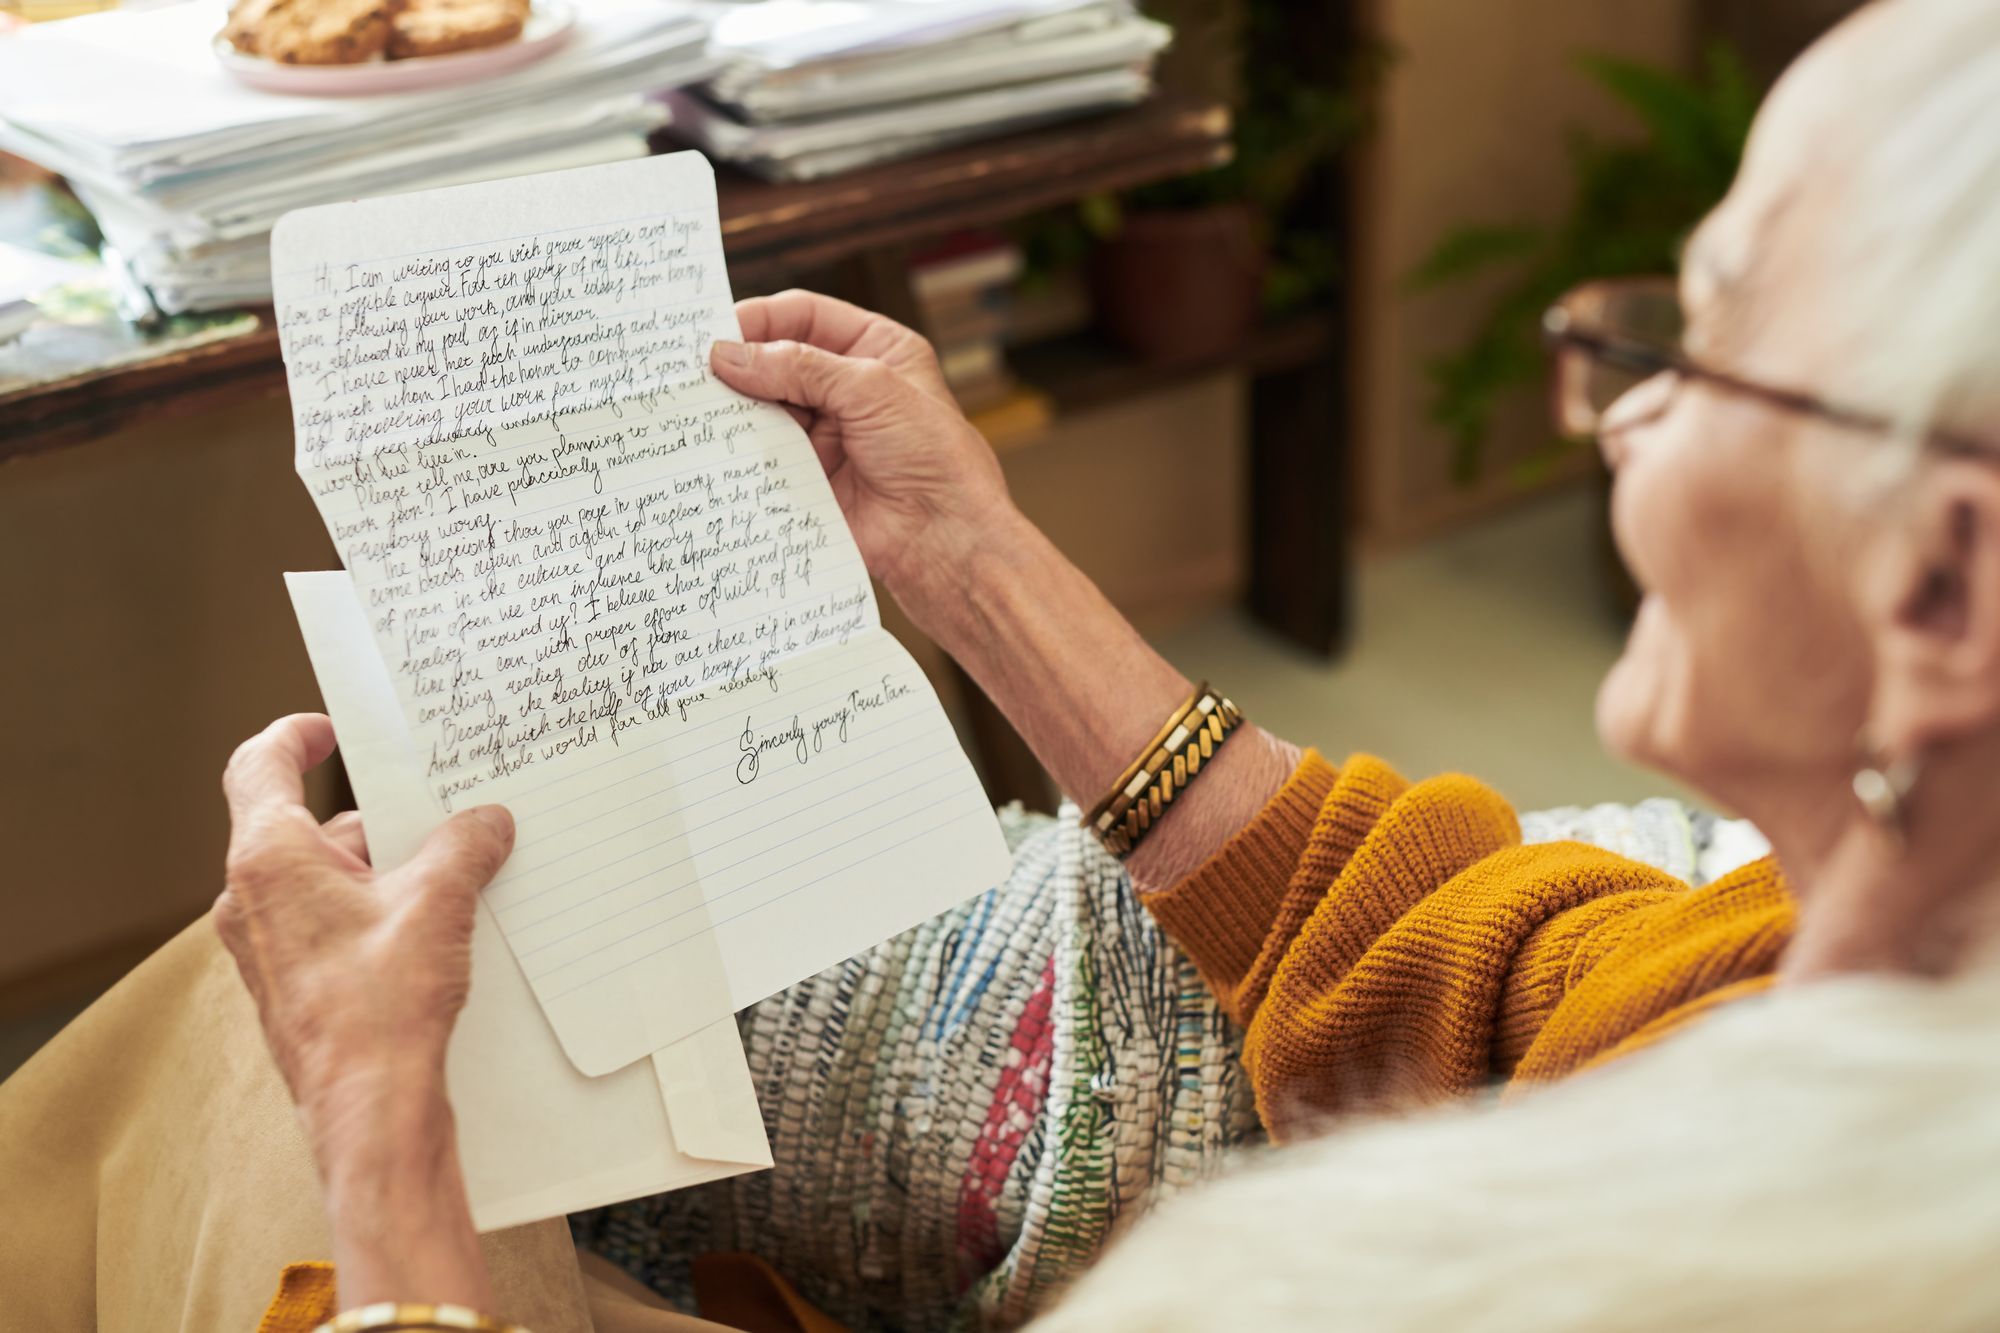 Hi, I am writing to you with great respect and hope
for a possible answer. For ten years of my life, I have
been following your work, and your ideas from books
are reflected in my soul as if in mirror.
I have never met such understanding and recipro
city with whom I had the honor to communicate, so
as discovering your work for myself, I took a
huge step towards understanding myself and
world we live in.
Please tell me, are you planning to write another
book soon? I have practically memorized all your
previous works.
The questions that you pose in your books make me
come back again and again to reflect on the place
of man in the culture and history of his time.
How often we can influence the appearance of the
reality around us? I believe that you and people
like you can, with proper effort of will, as if
carving reality out of stone.
Because the reality is not out there, it's in our heads
And only with the help of your books you do change
your whole world for all your readers.
Sincerly yours, True Fan.